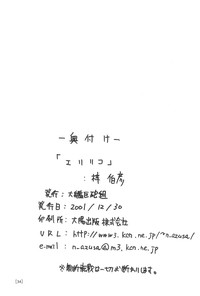 ー奥付けー
「エリリコ」
:林 伯彦
発行:大艦巨砲組
発行日:2001/12/30
印刷所:大陽出版株式会社
URL:http://www3.kcn.ne.jp/~n_azusa/
e-mail:n_azusa@m3.kcn.ne.jp
※無断転載は一切お断わります。